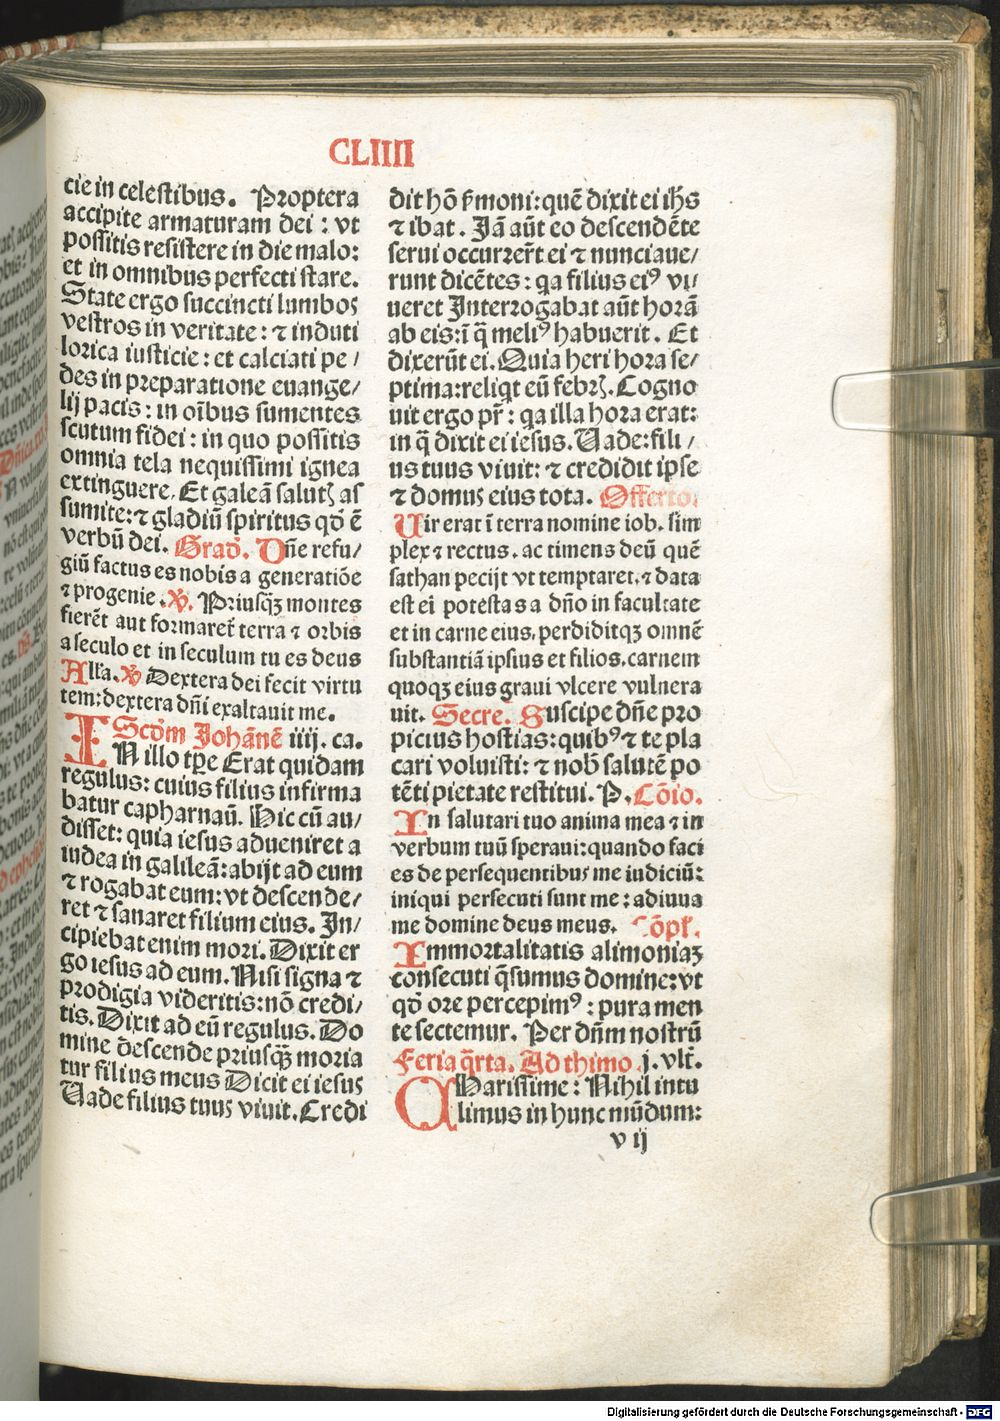 CLIIII
cie in celestibus. Proptera
accipite armaturam dei : vt
possitis resistere in die malo:
et in omnibus perfecti stare.
State ergo succincti lumbos
vestros in veritate : ⁊ induti
lorica iusticie : et calciati pe /
des in preparatione euange/
lij pacis : in oībus sumentes
scutum fidei : in quo possitis
omnia tela nequissimi ignea
extinguere. Et galeā salutꝫ as
sumite: ⁊ gladiū spiritus qð ē
verbū dei. Grad̄. Dñe refu/
giū factus es nobis a generatiōe
⁊ progenie . ℣. Priusqꝫ montes
fierēt aut formareṫ terra ⁊ orbis
a seculo et in seculum tu es deus
Alła. ℣ Dextera dei fecit virtu
tem: dextera dñi exaltauit me.
Scdm Johānē iiij. ca.
IN illo tꝑe Erat quidam
regulus: cuius filius infirma
batur capharnaū. Hic cū au/
disset: quia iesus adueniret a
iudea in galileā: abijt ad eum
⁊ rogabat eum: vt descende/
ret ⁊ sanaret filium eius. In/
cipiebat enim mori. Dixit er
go iesus ad eum. Nisi signa ⁊
prodigia videritis: nō credi/
tis. Dixit ad eū regulus. Do
mine descende priusqꝫ moria
tur filius meus Dicit ei iesus
Uade filius tuus viuit. Credi
dit hō ẜmoni: quē dixit ei ihs
⁊ ibat . Jā aūt eo descendēte
serui occurrerūt ei ⁊ nunciaue/
runt dicētes : qa filius eiꝰ vi/
ueret Interrogabat aūt horā
ab eis: ī q̄ meliꝰ habuerit . Et
dixerūt ei. Quia heri hora se/
ptima: reliqt eū febrꝫ. Cogno
uit ergo pr̄ : qa illa hora erat:
in q̄ dixit ei iesus. Uade: fili /
us tuus viuit: ⁊ credidit ipse
⁊ domus eius tota. Offerto.
Uir erat ī terra nomine iob. sim
plex ⁊ rectus. ac timens deū quē
sathan pecijt vt temptaret. ⁊ data
est ei potestas a dño in facultate
et in carne eius. perdiditqꝫ omnē
substantiā ipsius et filios. carnem
quoqꝫ eius graui vlcere vulnera
uit. Secre. Suscipe dñe pro
picius hostias: quibꝰ ⁊ te pla
cari voluisti: ⁊ nob̄ salutē po
tēti pietate restitui. P. Cōio.
In salutari tuo anima mea ⁊ in
verbum tuū speraui: quando faci
es de persequentibus me iudiciū:
iniqui persecuti sunt me : adiuua
me domine deus meus. Cōpł.
Immortalitatis alimoniaꝫ
consecuti q̄sumus domine: vt
qð ore percepimꝰ : pura men
te sectemur. Per dñm nostrū
Feria q̄rta. Ad thimo. j. vlt̄.
CHarissime : Nihil intu
limus in hunc mūdum:
v ij
Digitalisierung gefördert durch die Deutsche Forschungsgemeinschaft - DFG